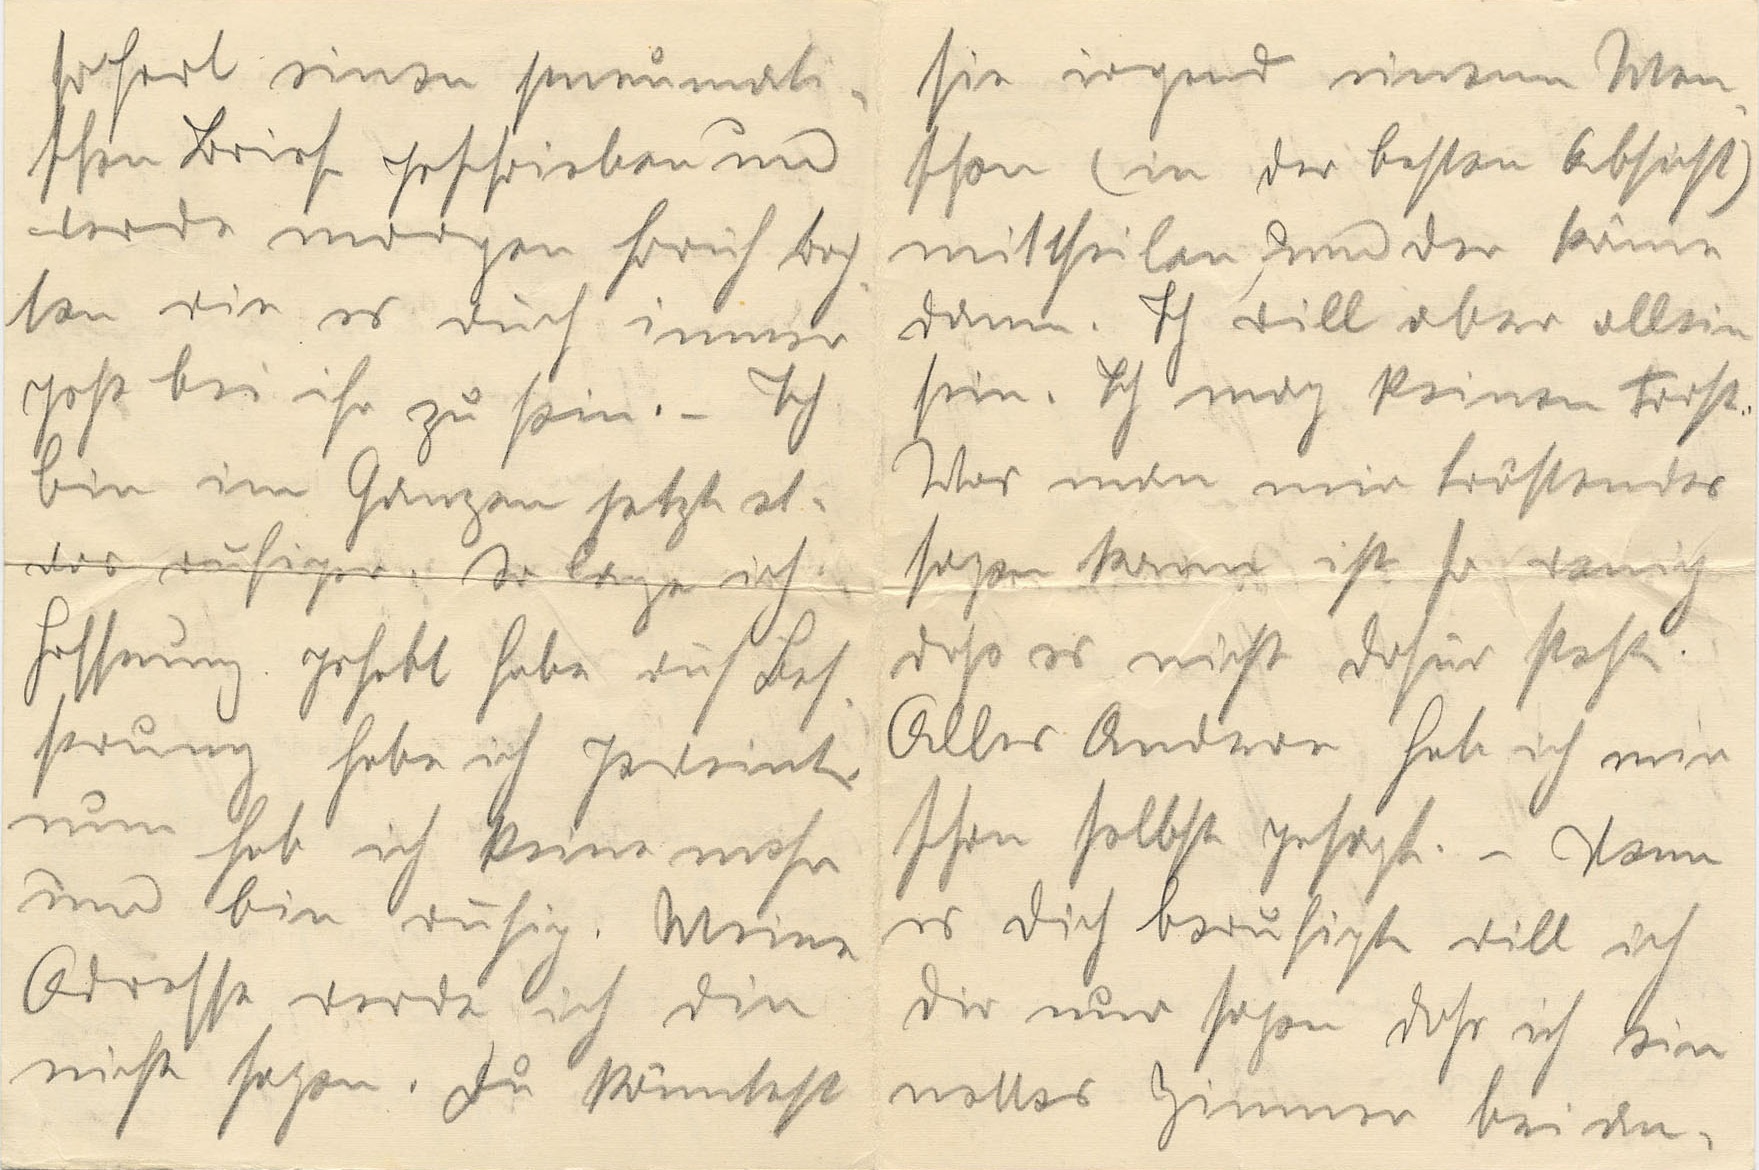 sofort einen pneumati-
schen Brief geschrieben und
werde morgen früh
ten wie es auch immer
geht bei ihr zu sein. – Ich
bin im Ganzen jetzt et-
was ruhiger. So lange ich
Hoffnung gehabt habe auf Bes-
serung habe ich geweint
nun hab ich keine mehr
und bin ruhig. Meine
Adresse werde ich dir
nicht sagen. Du könntest
sie irgend einem Men-
schen (in der besten Absicht)
mittheilen, und der käme
dann. Ich will aber allein
sein. Ich mag keinen Trost.
Was man mir tröstendes
sagen kann ist so wenig
dass es nicht dafür steht.
Alles Andere hab ich mir
schon selbst gesagt. – Wenn
es dich beruhigt will ich
dir nur sagen dass ich ein
nettes Zimmer bei an-